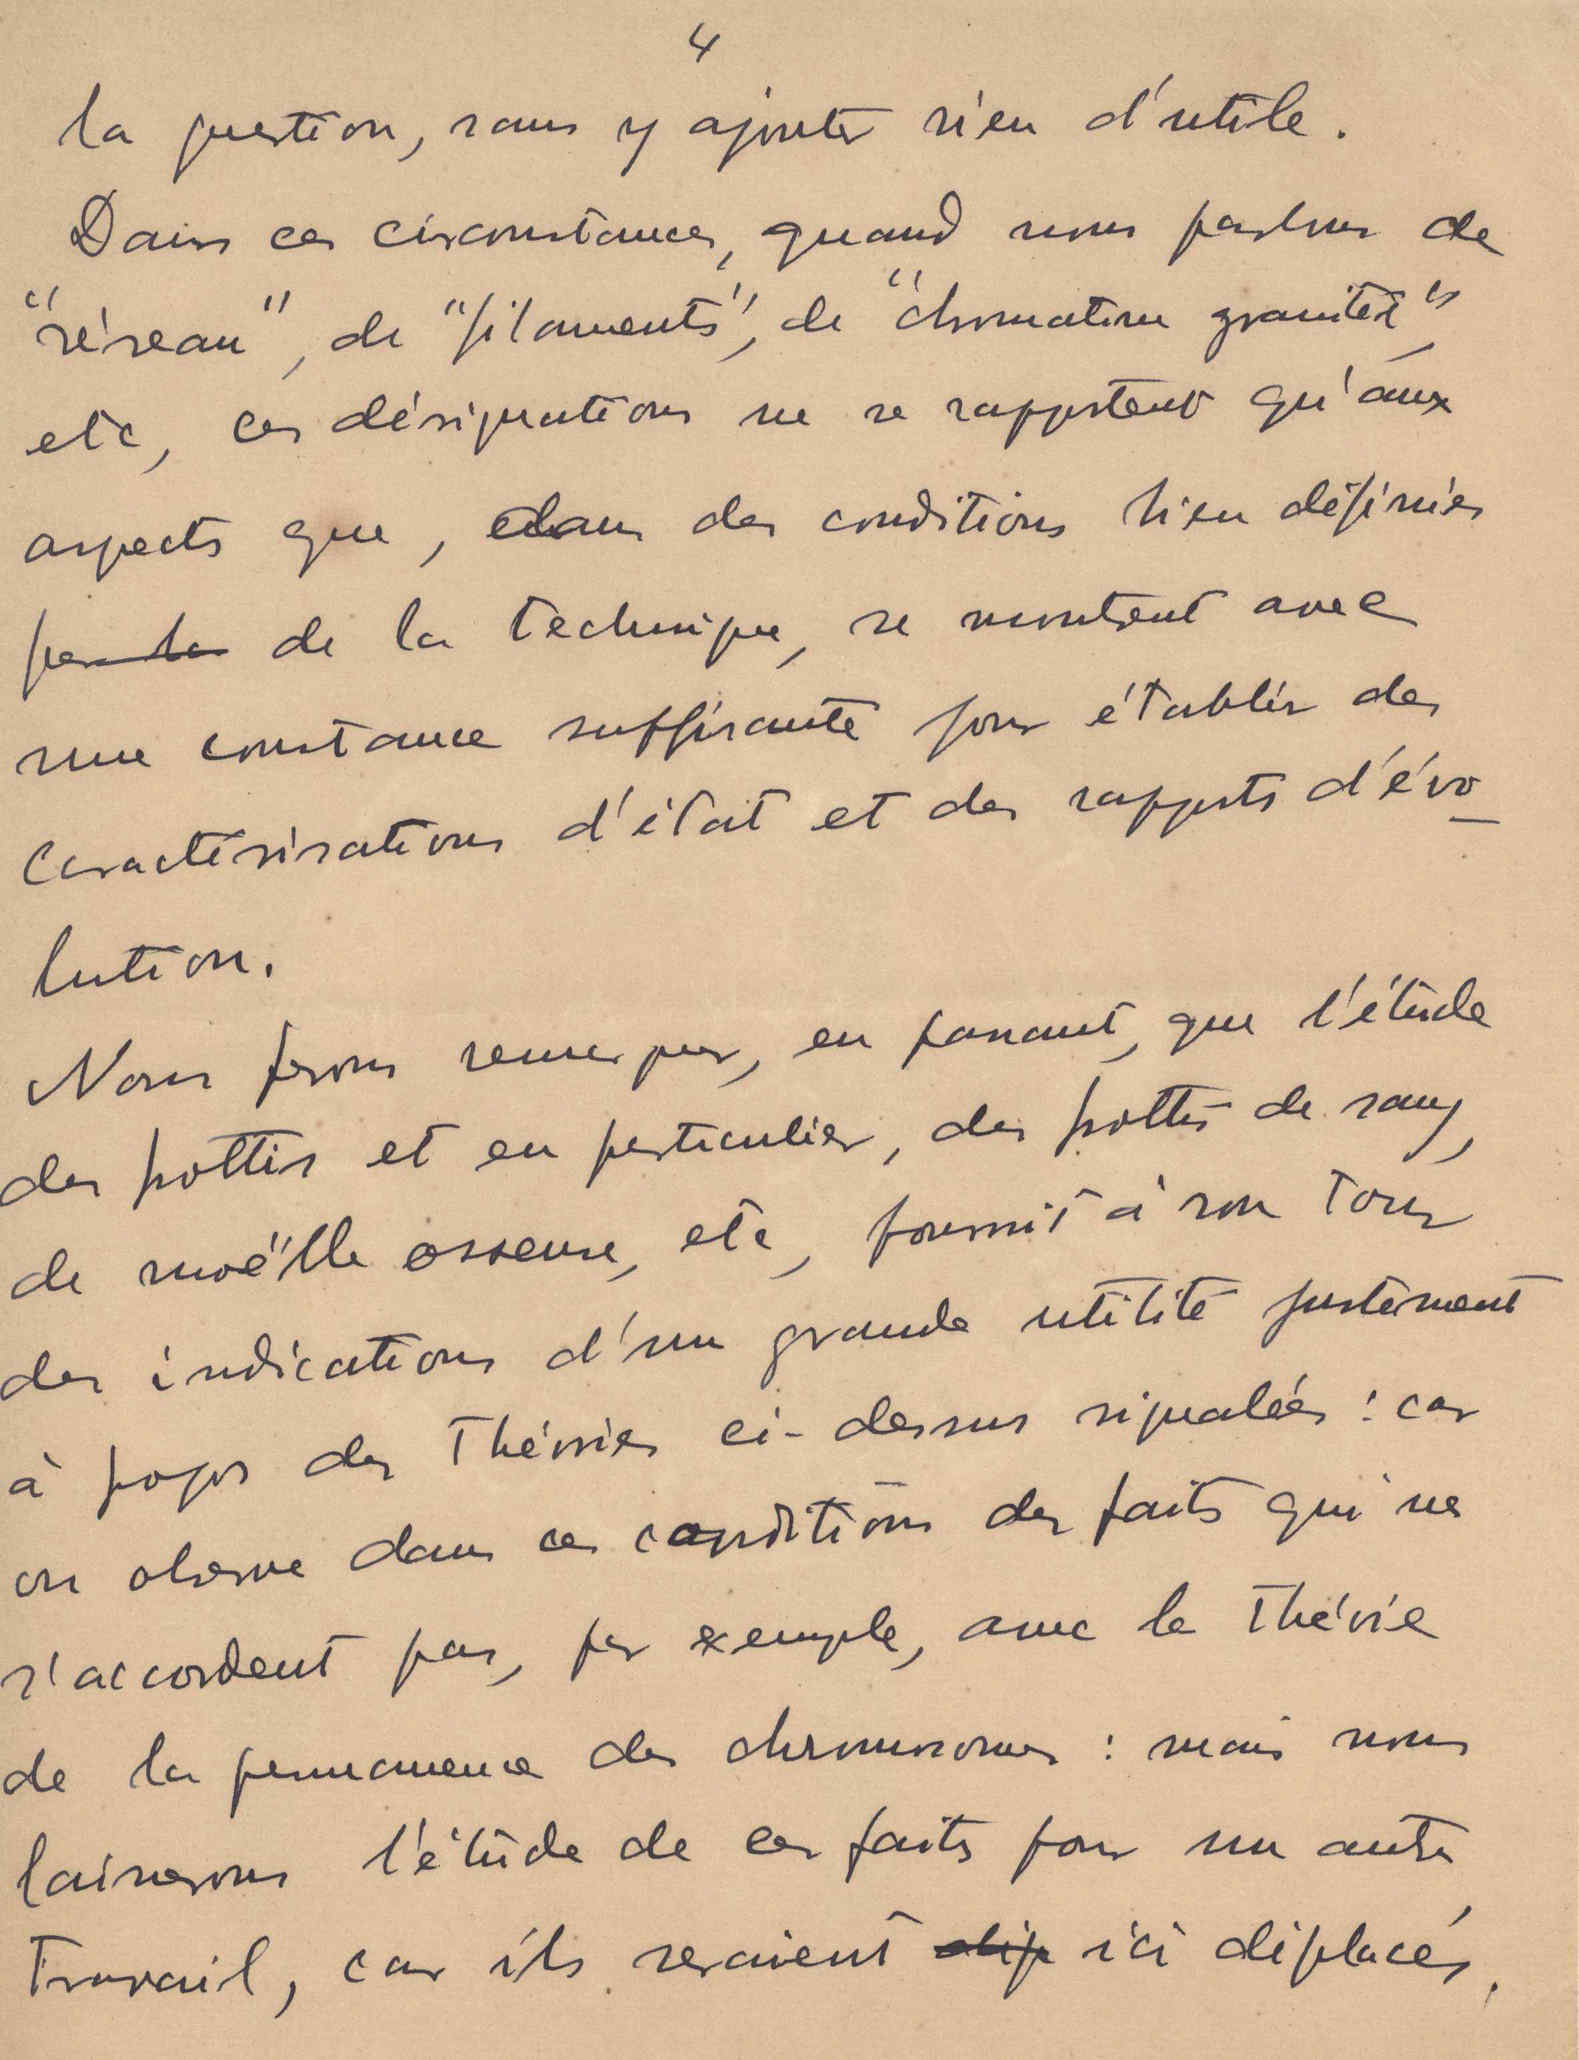 4
la question, sans y ajouter rien d'utile.
Dans ces circonstances, quand nous parlons de
"réseau", de "filaments", de "chromatine granitée",
etc, ces désignations ne se rapportent qu'aux
aspects que, dans des conditions bien définies
par la de la technique, se montrent avec
une constance suffisante pour établir des
caractérisations d'état et des rapports d'évo-
lution.
Nous ferons remarquer, en passant, que l'étude
des frottis et en particulier, des frottis de sang,
de moëlle osseuse, etc, fournit à son tour
des indications d'un grande utilité justement
à propos des théories ci-dessus signalées : car
on observe dans ces conditions des faits qui ne
s'accordent pas, par exemple, avec la théorie
de la permanence des chromosomes : mais nous
laisserons l'étude de ces faits pour un autre
travail, car ils seraient ici déplacés.